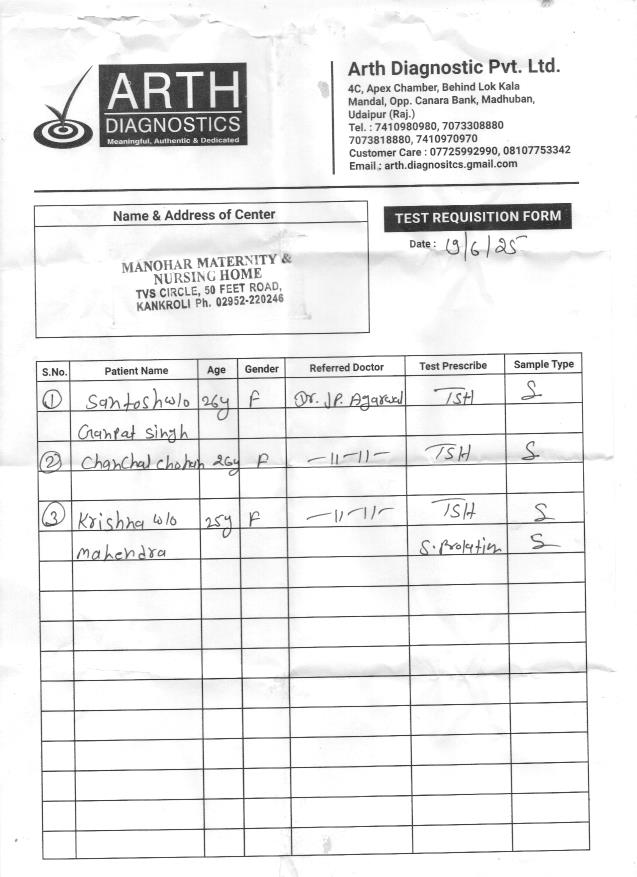 ARTH
DIAGNOSTICS
Meaningful, Authentic & Dedicated
Arth Diagnostic Pvt. Ltd.
4C, Apex Chamber, Behind Lok Kala
Mandal, Opp. Canara Bank, Madhuban,
Udaipur (Raj.)
Tel. : 7410980980, 7073308880
7073818880, 7410970970
Customer Care : 07725992990, 08107753342
Email : arth.diagnositcs.gmail.com
Name & Address of Center
MANOHAR MATERNITY &
NURSING HOME
TVS CIRCLE, 50 FEET ROAD,
KANKROLI Ph. 02952-220246
TEST REQUISITION FORM
Date : 19/6/25
S.No. Patient Name Age Gender Referred Doctor Test Prescribe Sample Type
1 Santosh w/o 26y F Dr. J.P. Agarwal TSH S
Ganpat Singh
2 Chanchal chohan 26y F —11—11— TSH S
3 Krishna w/o 25y F —11—11— TSH S
Mahendra S. Prolactin S